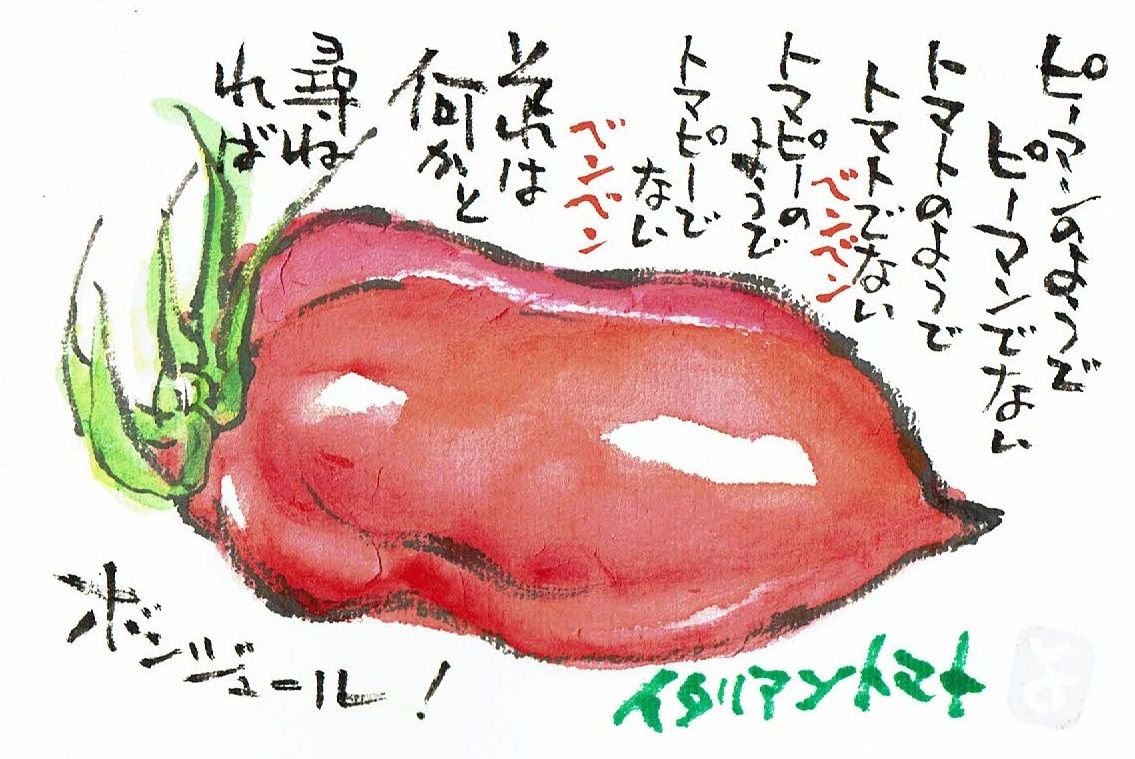 ピーマンのようで
ピーマンでない
トマトのようで
トマトでない
ベンベン
トマピーの
ようで
トマピーで
ない
ベンベン
其は
何かと
尋ね
れば
ボンジュール！
イタリアントマト